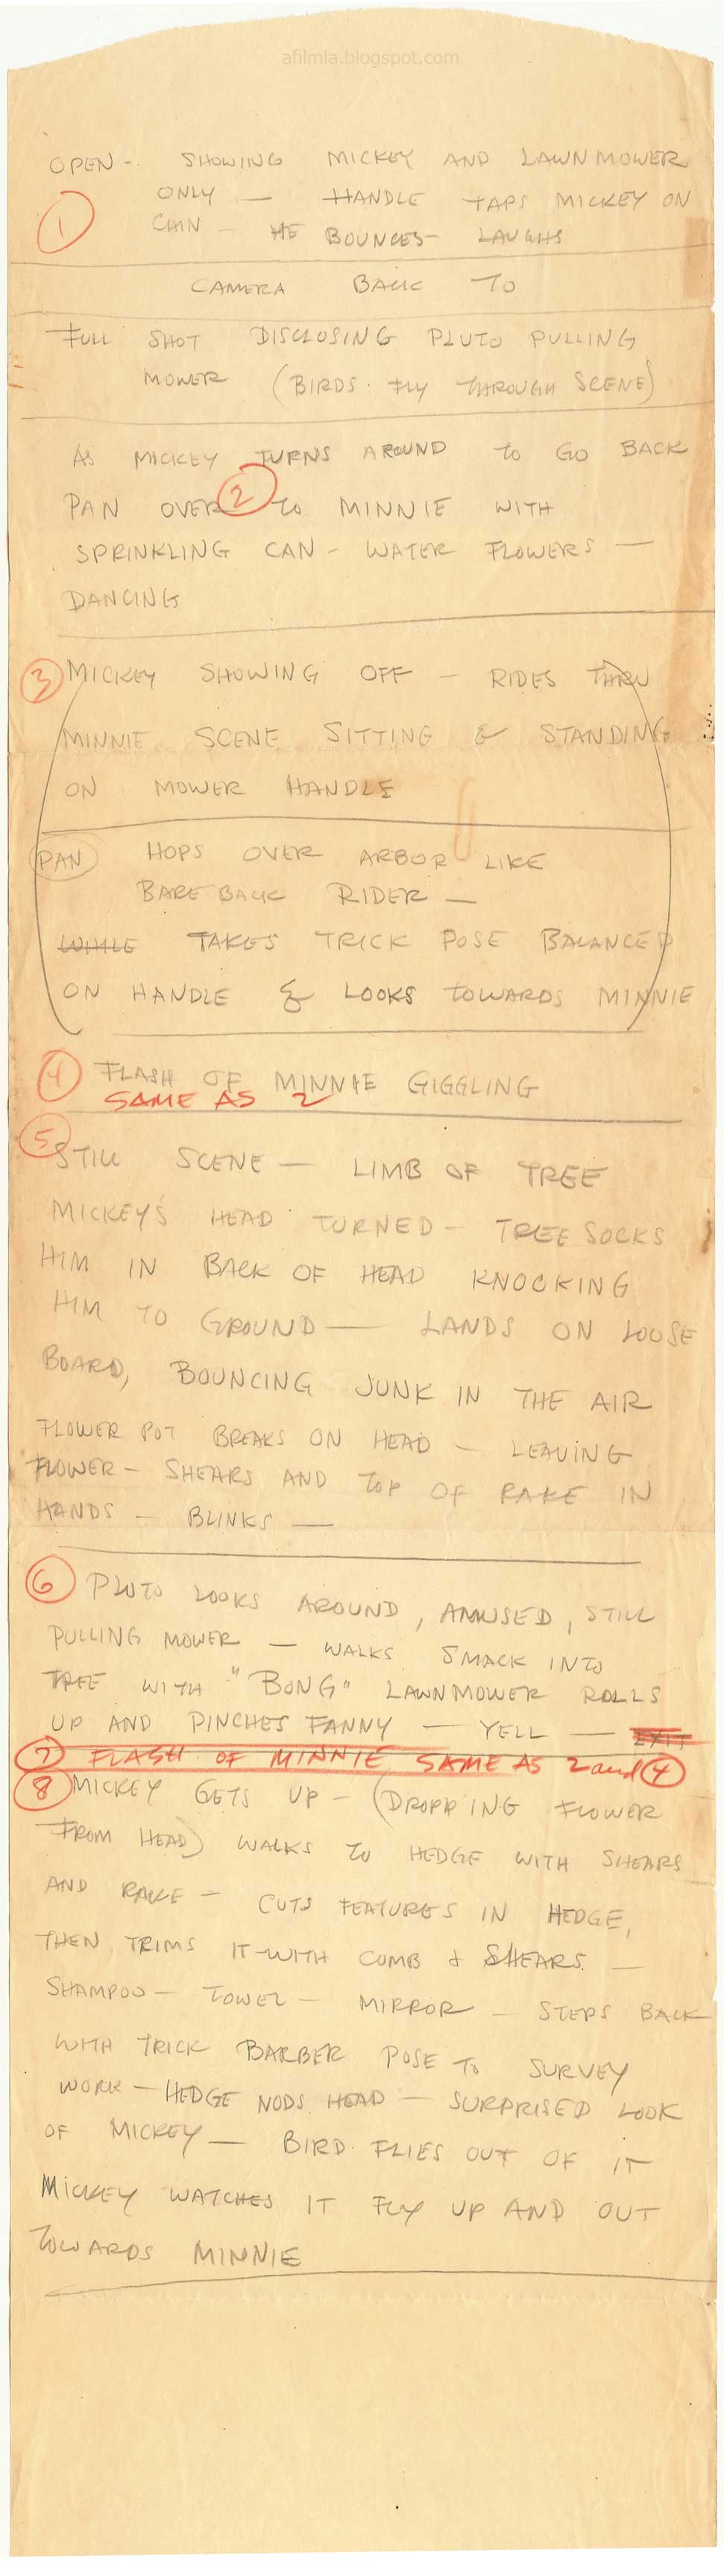 afilmla.blogspot.com
OPEN - SHOWING MICKEY AND LAWNMOWER
① ONLY — HANDLE TAPS MICKEY ON
CHIN — HE BOUNCES - LAUGHS
CAMERA BACK TO
FULL SHOT DISCLOSING PLUTO PULLING
MOWER (BIRDS FLY THROUGH SCENE)
AS MICKEY TURNS AROUND TO GO BACK
PAN OVER ② TO MINNIE WITH
SPRINKLING CAN - WATER FLOWERS —
DANCING
③ MICKEY SHOWING OFF — RIDES THRU
MINNIE SCENE SITTING & STANDING
ON MOWER HANDLE
PAN HOPS OVER ARBOR LIKE
BAREBACK RIDER —
WHILE TAKES TRICK POSE BALANCED
ON HANDLE & LOOKS TOWARDS MINNIE
④ FLASH OF MINNIE GIGGLING
SAME AS 2
⑤ STILL SCENE — LIMB OF TREE
MICKEY'S HEAD TURNED - TREE SOCKS
HIM IN BACK OF HEAD KNOCKING
HIM TO GROUND — LANDS ON LOOSE
BOARD, BOUNCING JUNK IN THE AIR
FLOWER POT BREAKS ON HEAD — LEAVING
FLOWER - SHEARS AND TOP OF RAKE IN
HANDS — BLINKS —
⑥ PLUTO LOOKS AROUND, AMUSED, STILL
PULLING MOWER — WALKS SMACK INTO
TREE WITH "BONG" LAWNMOWER ROLLS
UP AND PINCHES FANNY — YELL — EXIT
⑦ FLASH OF MINNIE SAME AS 2 and ④
⑧ MICKEY GETS UP - (DROPPING FLOWER
FROM HEAD) WALKS TO HEDGE WITH SHEARS
AND RAKE - CUTS FEATURES IN HEDGE,
THEN TRIMS IT WITH COMB & SHEARS —
SHAMPOO - TOWEL - MIRROR - STEPS BACK
WITH TRICK BARBER POSE TO SURVEY
WORK - HEDGE NODS HEAD - SURPRISED LOOK
OF MICKEY — BIRD FLIES OUT OF IT
MICKEY WATCHES IT FLY UP AND OUT
TOWARDS MINNIE